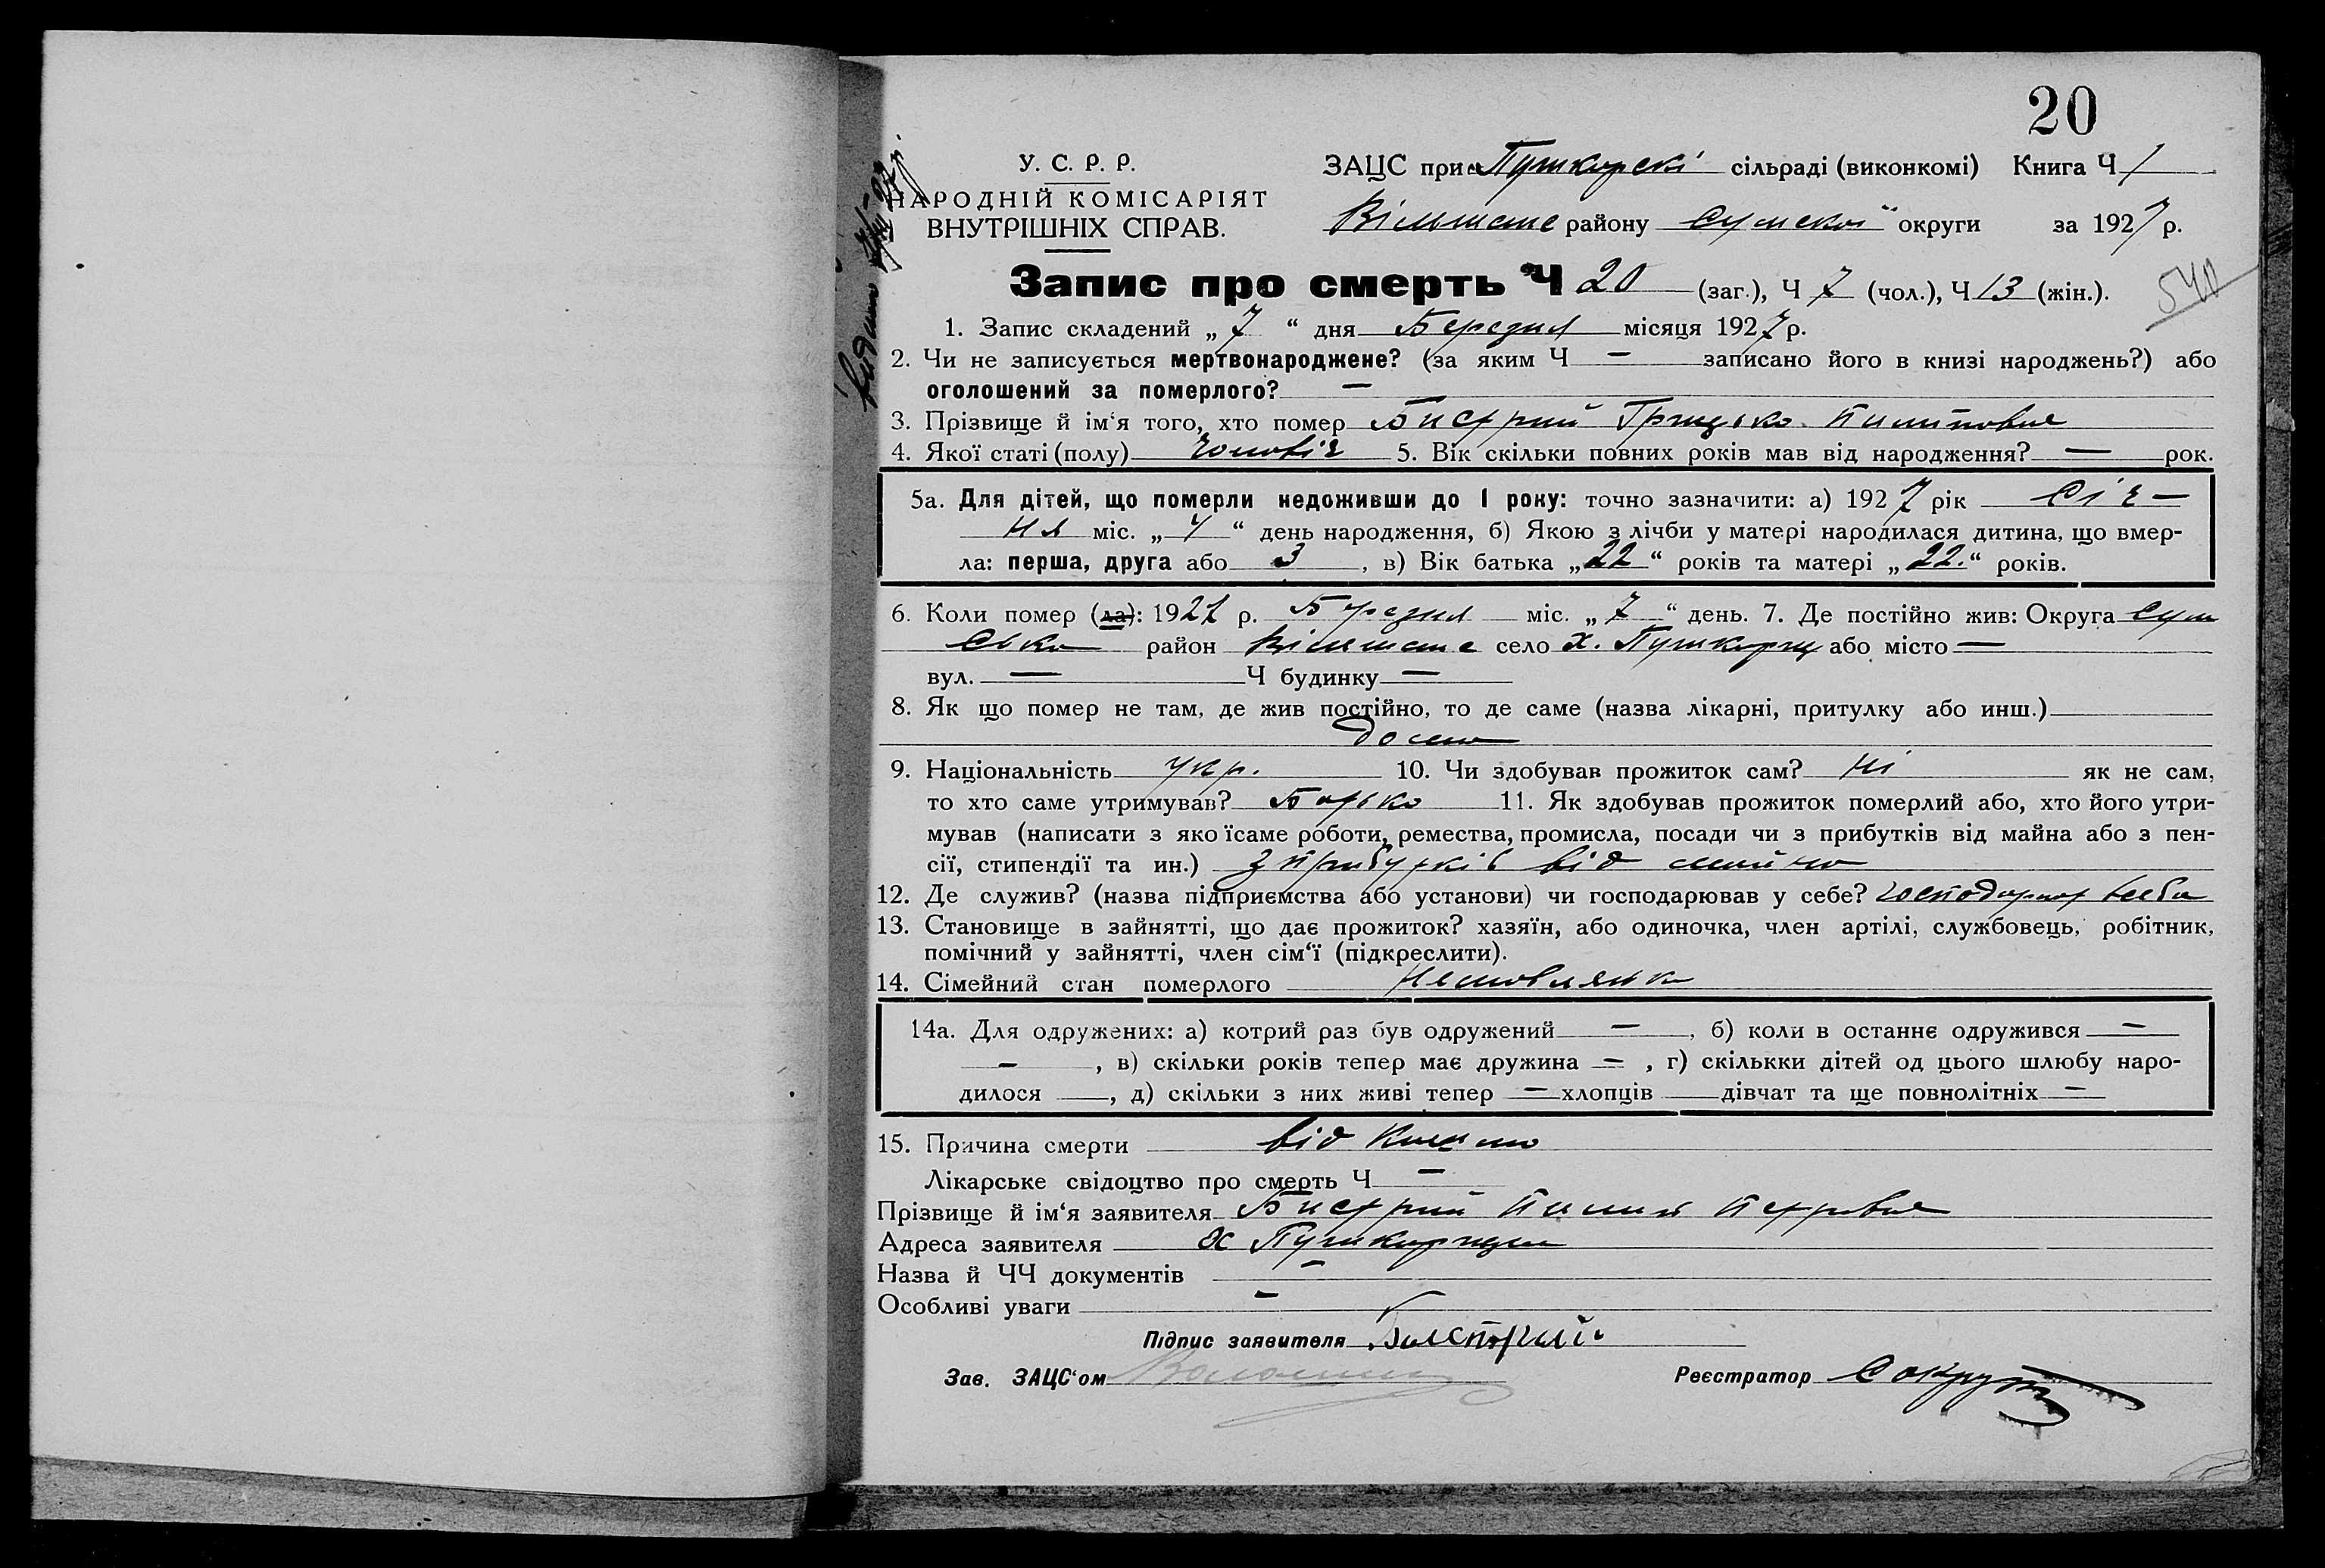 20
У. С. Р. Р.
НАРОДНІЙ КОМІСАРІЯТ
ВНУТРІШНІХ СПРАВ.
ЗАЦС при Пушкарскі сільраді (виконкомі) Книга Ч 1
Вільшане району Сумскої округи за 1927 р.
Запис про смерть Ч 20 (заг.), Ч 7 (чол.), Ч 13 (жін.).
540
1. Запис складений „ 7 “ дня Березня місяця 1927 р.
2. Чи не записується мертвонароджене? (за яким Ч — записано його в книзі народжень?) або
оголошений за померлого? —
3. Прізвище й ім‘я того, хто помер Бистрий Грицько Пилипович
4. Якої статі (полу) Чоловіч 5. Вік скільки повних років мав від народження? — рок.
5а. Для дітей, що померли недоживши до 1 року: точно зазначити: а) 1927 рік Січ—
ня міс. „ 4 “ день народження, б) Якою з лічби у матері народилася дитина, що вмер-
ла: перша, друга або 3 , в) Вік батька „ 22 “ років та матері „ 22. “ років.
6. Коли помер (ла): 1927 р. Березня міс. „ 7 “ день. 7. Де постійно жив: Округа Сум
сько район Вільшане село х. Пушкарщ або місто —
вул. — Ч будинку —
8. Як що помер не там, де жив постійно, то де саме (назва лікарні, притулку або инш.)
дома
9. Національність укр. 10. Чи здобував прожиток сам? Ні як не сам,
то хто саме утримував? Батько 11. Як здобував прожиток померлий або, хто його утри-
мував (написати з яко їсаме роботи, ремества, промисла, посади чи з прибутків від майна або з пен-
сії, стипендії та ин.) з прибутків від майна
12. Де служив? (назва підприємства або установи) чи господарював у себе? господарює
13. Становище в зайнятті, що дає прожиток? хазяїн, або одиночка, член артілі, службовець, робітник,
помічний у зайнятті, член сім‘ї (підкреслити).
14. Сімейний стан померлого Немовлянка
14а. Для одружених: а) котрий раз був одружений — , б) коли в останнє одружився —
— , в) скільки років тепер має дружина — , г) скількки дітей од цього шлюбу наро-
дилося , д) скільки з них живі тепер — хлопців дівчат та ще повнолітніх —
15. Причина смерти від Кашлю
Лікарське свідоцтво про смерть Ч —
Прізвище й ім‘я заявителя Бистрий Пилип Петрович
Адреса заявителя х Пушкарщи
Назва й ЧЧ документів —
Особливі уваги —
Підпис заявителя Бистрий
Зав. ЗАЦС‘ом
Реєстратор Сокрут